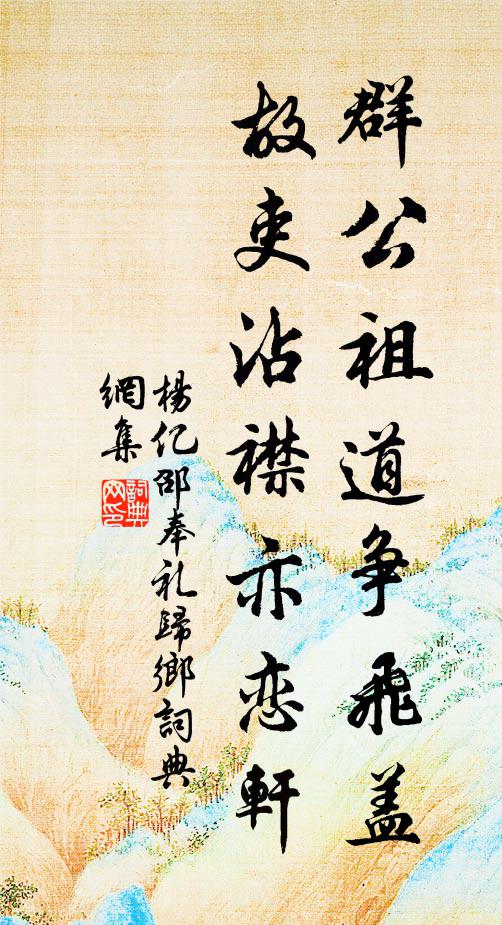 群公祖道争飛盖
故吏沾襟亦恋軒
楊亿邵奉礼歸鄉詞典
網集
詞典
网印